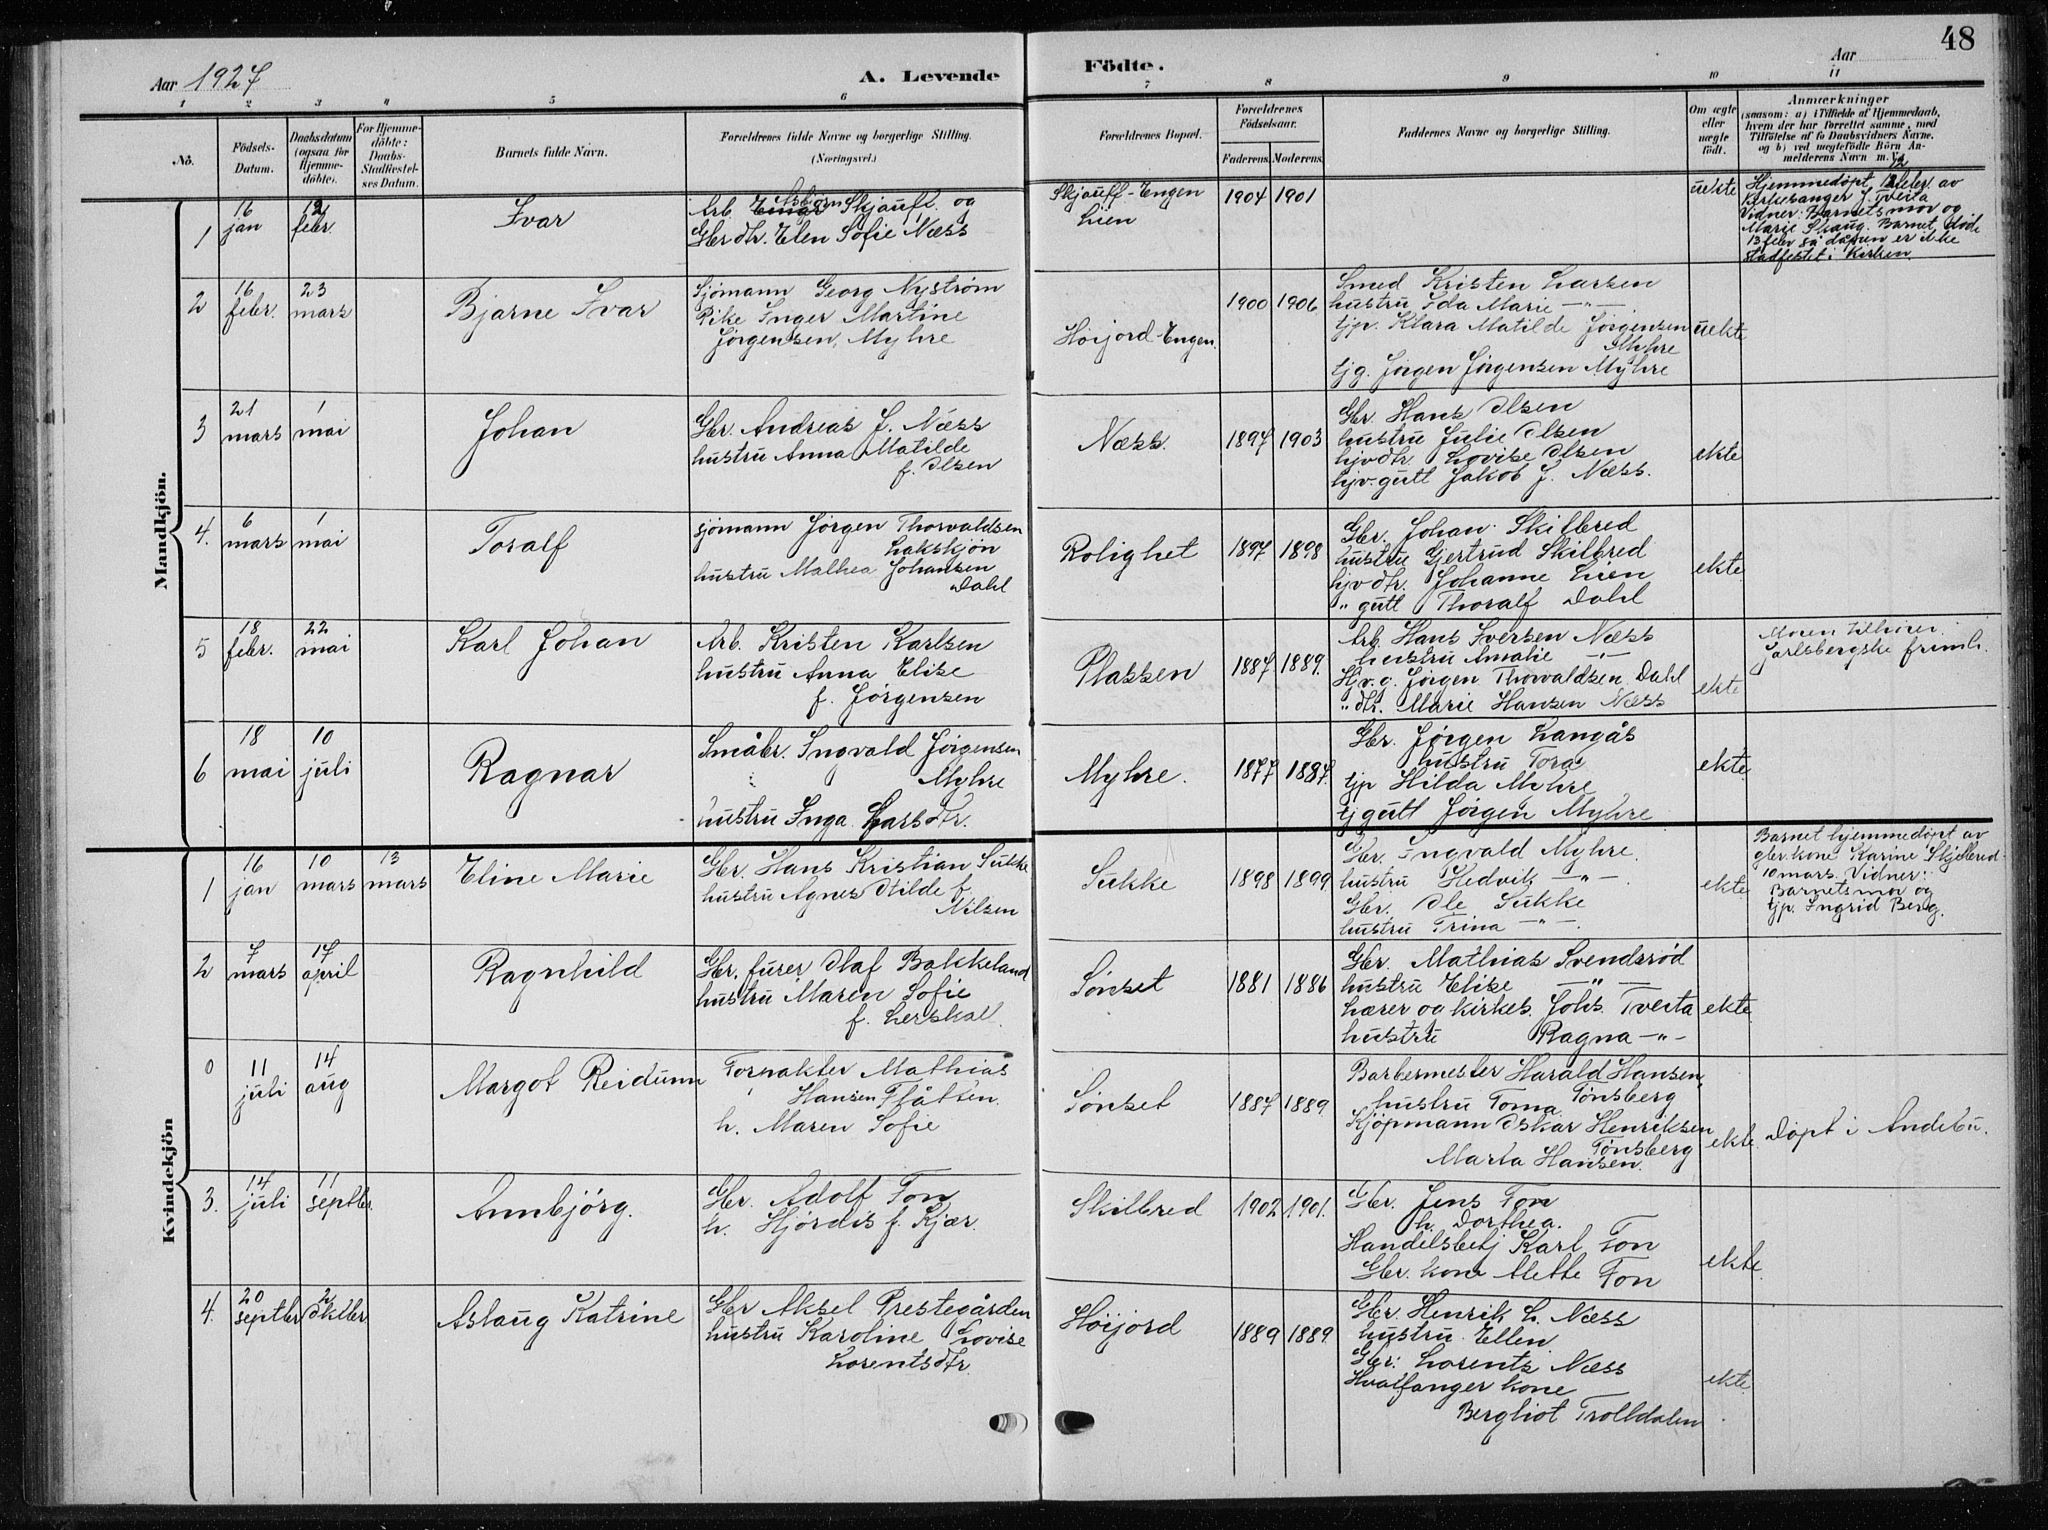 48
Aar 1927
A. Levende
Födte.
Aar
1 2 3 4 5 6 7 8 9 10 11
No.
Födsels-
Datum.
Daabsdatum
(ogsaa for
Hjemme-
döbte).
For Hjemme-
döbte:
Daabs-
Stadfæstel-
ses Datum.
Barnets fulde Navn.
Forældrenes fulde Navne og borgerlige Stilling.
(Næringsvei.)
Forældrenes Bopæl.
Forældrenes
Födselsaar.
Faderens. Moderens.
Faddernes Navne og borgerlige Stilling.
Om ægte
eller
uægte
født.
Anmærkninger
(saasom: a) i Tilfælde af Hjemmedaab,
hvem der har forrettet samme, med
Tilföielse af to Daabsvidners Navne,
og b) ved uægtefödte Börn An-
melderens Navn m. V.
Mandkjön.
1
16
jan
12
febr.
Ivar
Asbjørn
Arb. Einar Skjauff. og
Gbr.dtr. Elen Sofie Næss
Skjauff-Engen
Lien
1904 1901
uekte
Hjemmedøpt 12 febr. av
Kirkesanger J. Tveita
Vidner: Barnets mor og
Marie Skaug. Barnet døde
13 febr så dåpen er ikke
stadfestet i Kirken.
2
16
febr.
23
mars
Bjarne Ivar
Sjømann Georg Nystrøm
Pike Inger Martine
Jørgensen, Myhre
Høijord-Engen.
1900 1906
Smed Kristen Larsen
hustru Ida Marie -"-
tjp. Klara Matilde Jørgensen
Myhre
tjg. Jørgen Jørgensen Myhre
uekte
3
21
mars
1
mai
Johan
Gbr. Andreas J. Næss
hustru Anna Matilde
f. Olsen
Næss.
1897 1903
Gbr. Hans Olsen
hustru Julie Olsen
hjv.dtr. Lovise Olsen
hjv.gutt Jakob J. Næss.
ekte
4.
6
mars
1
mai
Toralf
sjømann Jørgen Thorvaldsen
Lakskjøn
hustru Malhea Johansen
Dahl
Rolighet
1897 1898
Gbr. Johan Skilbred
hustru Gjertrud Skilbred
hjv.dtr. Johanne Lien
" gutt Thoralf Dahl
ekte
5
18
febr.
22
mai
Karl Johan
Arb. Kristen Karlsen
hustru Anna Elise
f. Jørgensen
Plassen
1887 1889.
Arb. Hans Iversen Næss
hustru Amalie -"-
Hjv.g. Jørgen Thorvaldsen Dahl
" dtr. Marie Hansen Næss
ekte
Moren tilhører
Jarlsbergske frimh.
6
18
mai
10
juli
Ragnar
Småbr. Ingvald Jørgensen
Myhre
hustru Inga Larsdtr.
Myhre.
1877 1887.
Gbr. Jørgen Langås
hustru Tora
tjp Hilda Myhre
tjgutt Jørgen Myhre
ekte
Kvindekjön
1
16
jan
10
mars
13
mars
Eline Marie
Gbr. Hans Kristian Sukke
hustru Agnes Otilde f.
Nilsen
Sukke
1898 1899.
Gbr. Ingvald Myhre.
hustru Hedvik -"-
Gbr. Ole Sukke
hustru Trina -"-
ekte
Barnet hjemmedøpt av
gbr.kone Karine Skjelbred
10 mars. Vidner:
Barnets mor og
tjp. Ingrid Berg.
2
7
mars
17
april
Ragnhild
Gbr, furer Olaf Bakkeland
hustru Maren Sofie
f. Lerskall
Sønset
1881 1886
Gbr. Mathias Svendsrød
hustru Elise -"-
Lærer og kirkes. Johs. Tveita
hustru Ragna -"-
ekte
0
11
juli
14
aug
Margot Reidunn
Forpakter Mathias
Hansen Flåtten.
h. Maren Sofie
Sønset
1887 1889
Barbermester Harald Hansen,
hustru Toma Tønsberg
Kjøpmann Oskar Henriksen
Tønsberg
Marta Hansen.
ekte
Døpt i Andebu.
3.
14
juli
11
septbr.
Annbjörg.
Gbr. Adolf Fon
h. Hjørdis f. Kjær.
Skilbred
1902 1901.
Gbr. Jens Fon
h. Dorthea.
Handelsbetj Karl Fon
Gbr. kone Mette Fon
ekte
4.
20
septbr
2
oktbr
Aslaug Katrine
Gbr Aksel Prestegården
hustru Karoline Lovise
Lorentsdtr.
Høijord
1889 1889.
Gbr. Henrik L. Næss
hustru Ellen
Gbr. Lorents Næss
Hvalfanger kone
Bergliot Trolldalen
ekte